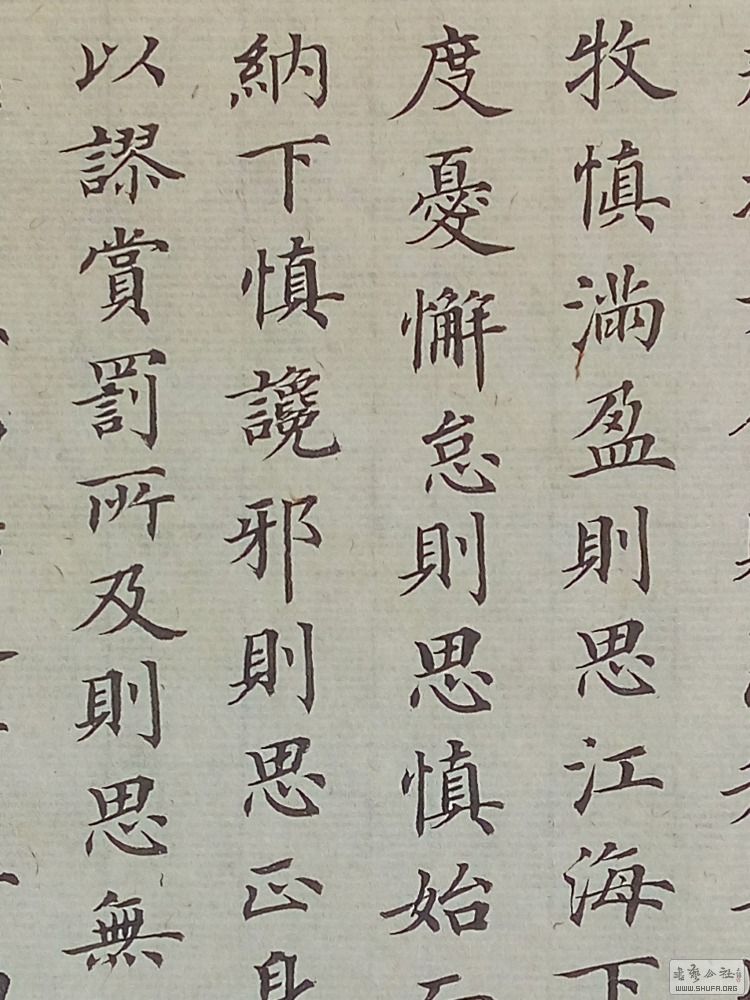 牧慎滿盈則思江海下
度憂懈怠則思慎始而
納下慎讒邪則思正身
以謬賞罰所及則思無
WWW.SHUFA.ORG